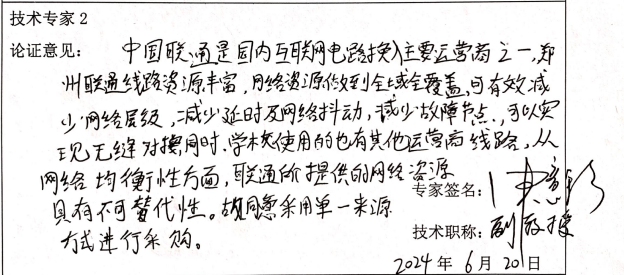 技术专家2
论证意见: 中国联通是国内互联网电路接入主要运营商之一,郑
州联通线路资源丰富,网络资源做到全域全覆盖,可有效减
少网络层级,减少延时及网络抖动,减少故障节点,可以实
现无缝对接同时,学校使用的也有其他运营商线路,从
网络均衡性方面,联通所提供的网络资源
具有不可替代性。故同意采用单一来源
方式进行采购。
专家签名:
技术职称:副教授
2024年6月20日